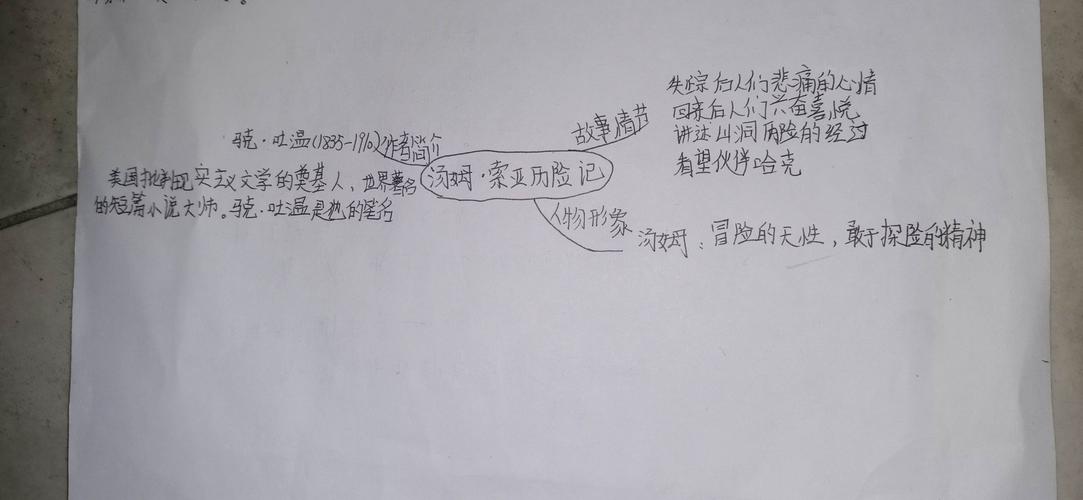 马克·吐温(1835-1910)作者简介
美国批判现实主义文学的奠基人，世界著名
的短篇小说大师。马克·吐温是他的笔名
汤姆·索亚历险记
故事情节
失踪后人们悲痛的心情
回来后人们兴奋喜悦
讲述山洞历险的经过
看望伙伴哈克
人物形象
汤姆：冒险的天性，敢于探险的精神